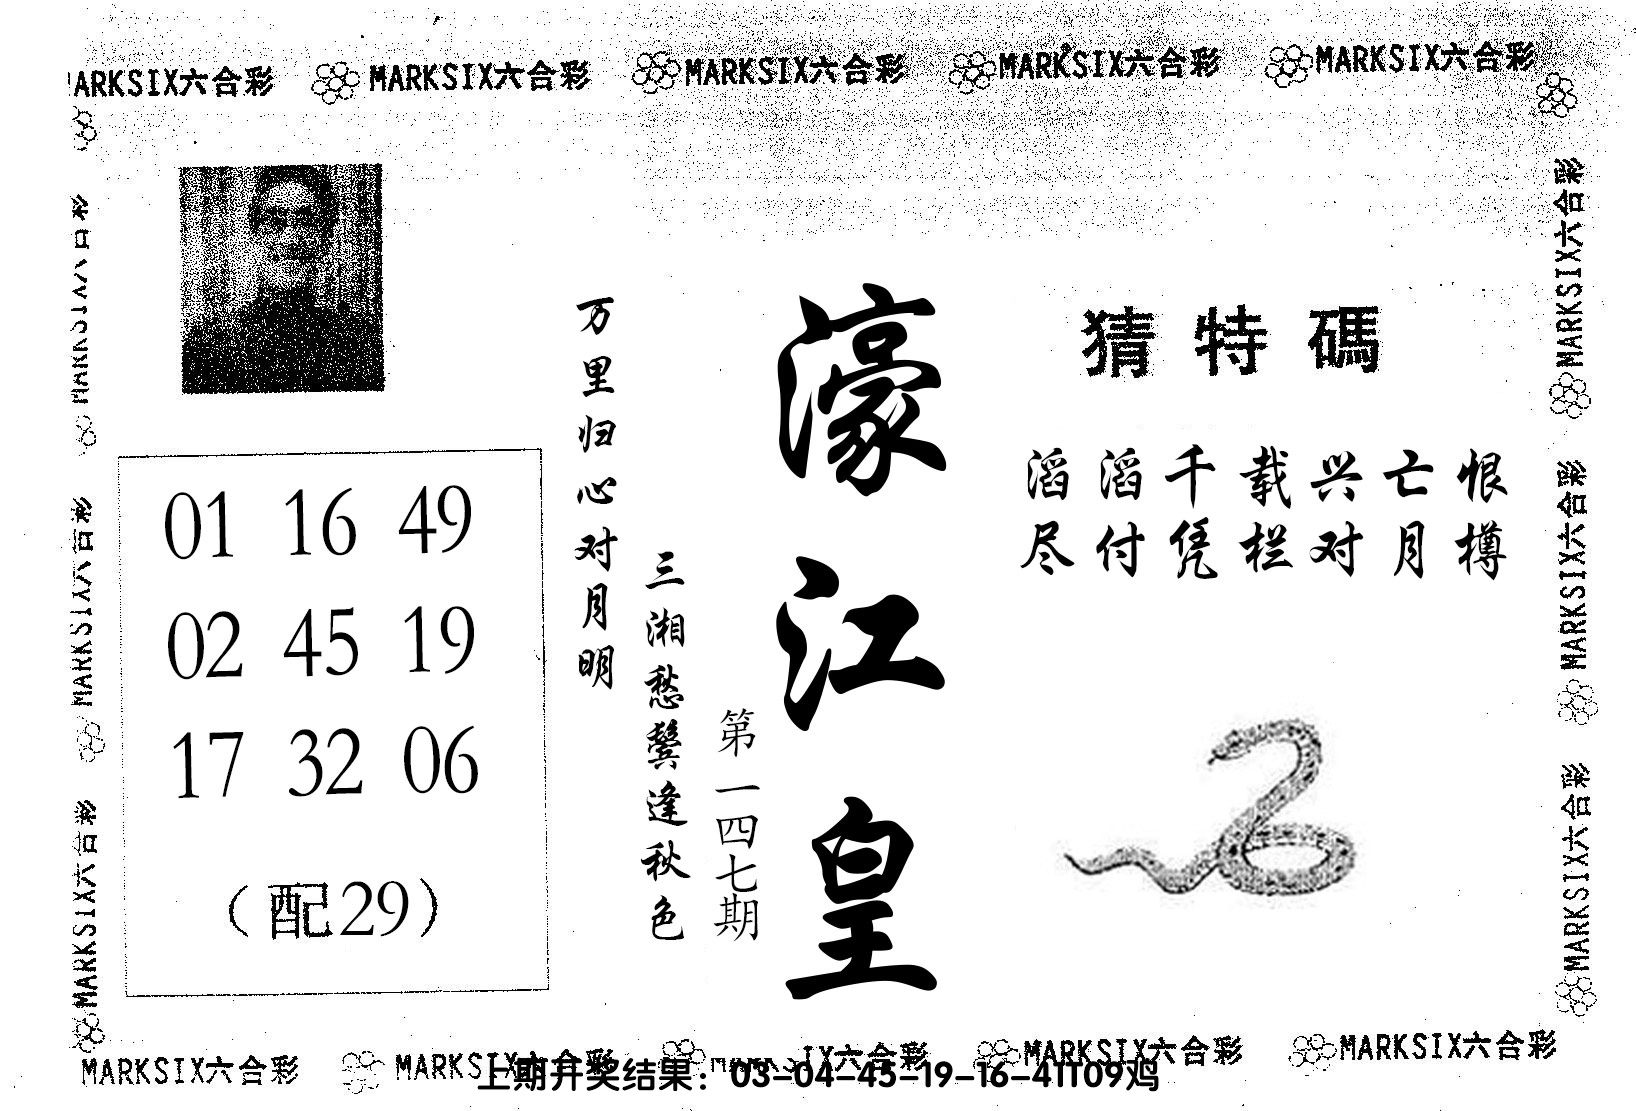 MARKSIX六合彩 MARKSIX六合彩 MARKSIX六合彩 MARKSIX六合彩 MARKSIX六合彩
猜特碼
滔滔千载兴亡恨
尽付凭栏对月樽
濠江皇
第一四七期
万里归心对月明
三湘愁鬓逢秋色
01 16 49
02 45 19
17 32 06
（配29）
MARKSIX六合彩
MARKSIX六合彩
MARKSIX六合彩
MARKSIX六合彩
MARKSIX六合彩
MARKSIX六合彩
MARKSIX六合彩 MARKSIX六合彩 IX六合彩 MARKSIX六合彩 MARKSIX六合彩
上期开奖结果：03-04-45-19-16-41T09鸡